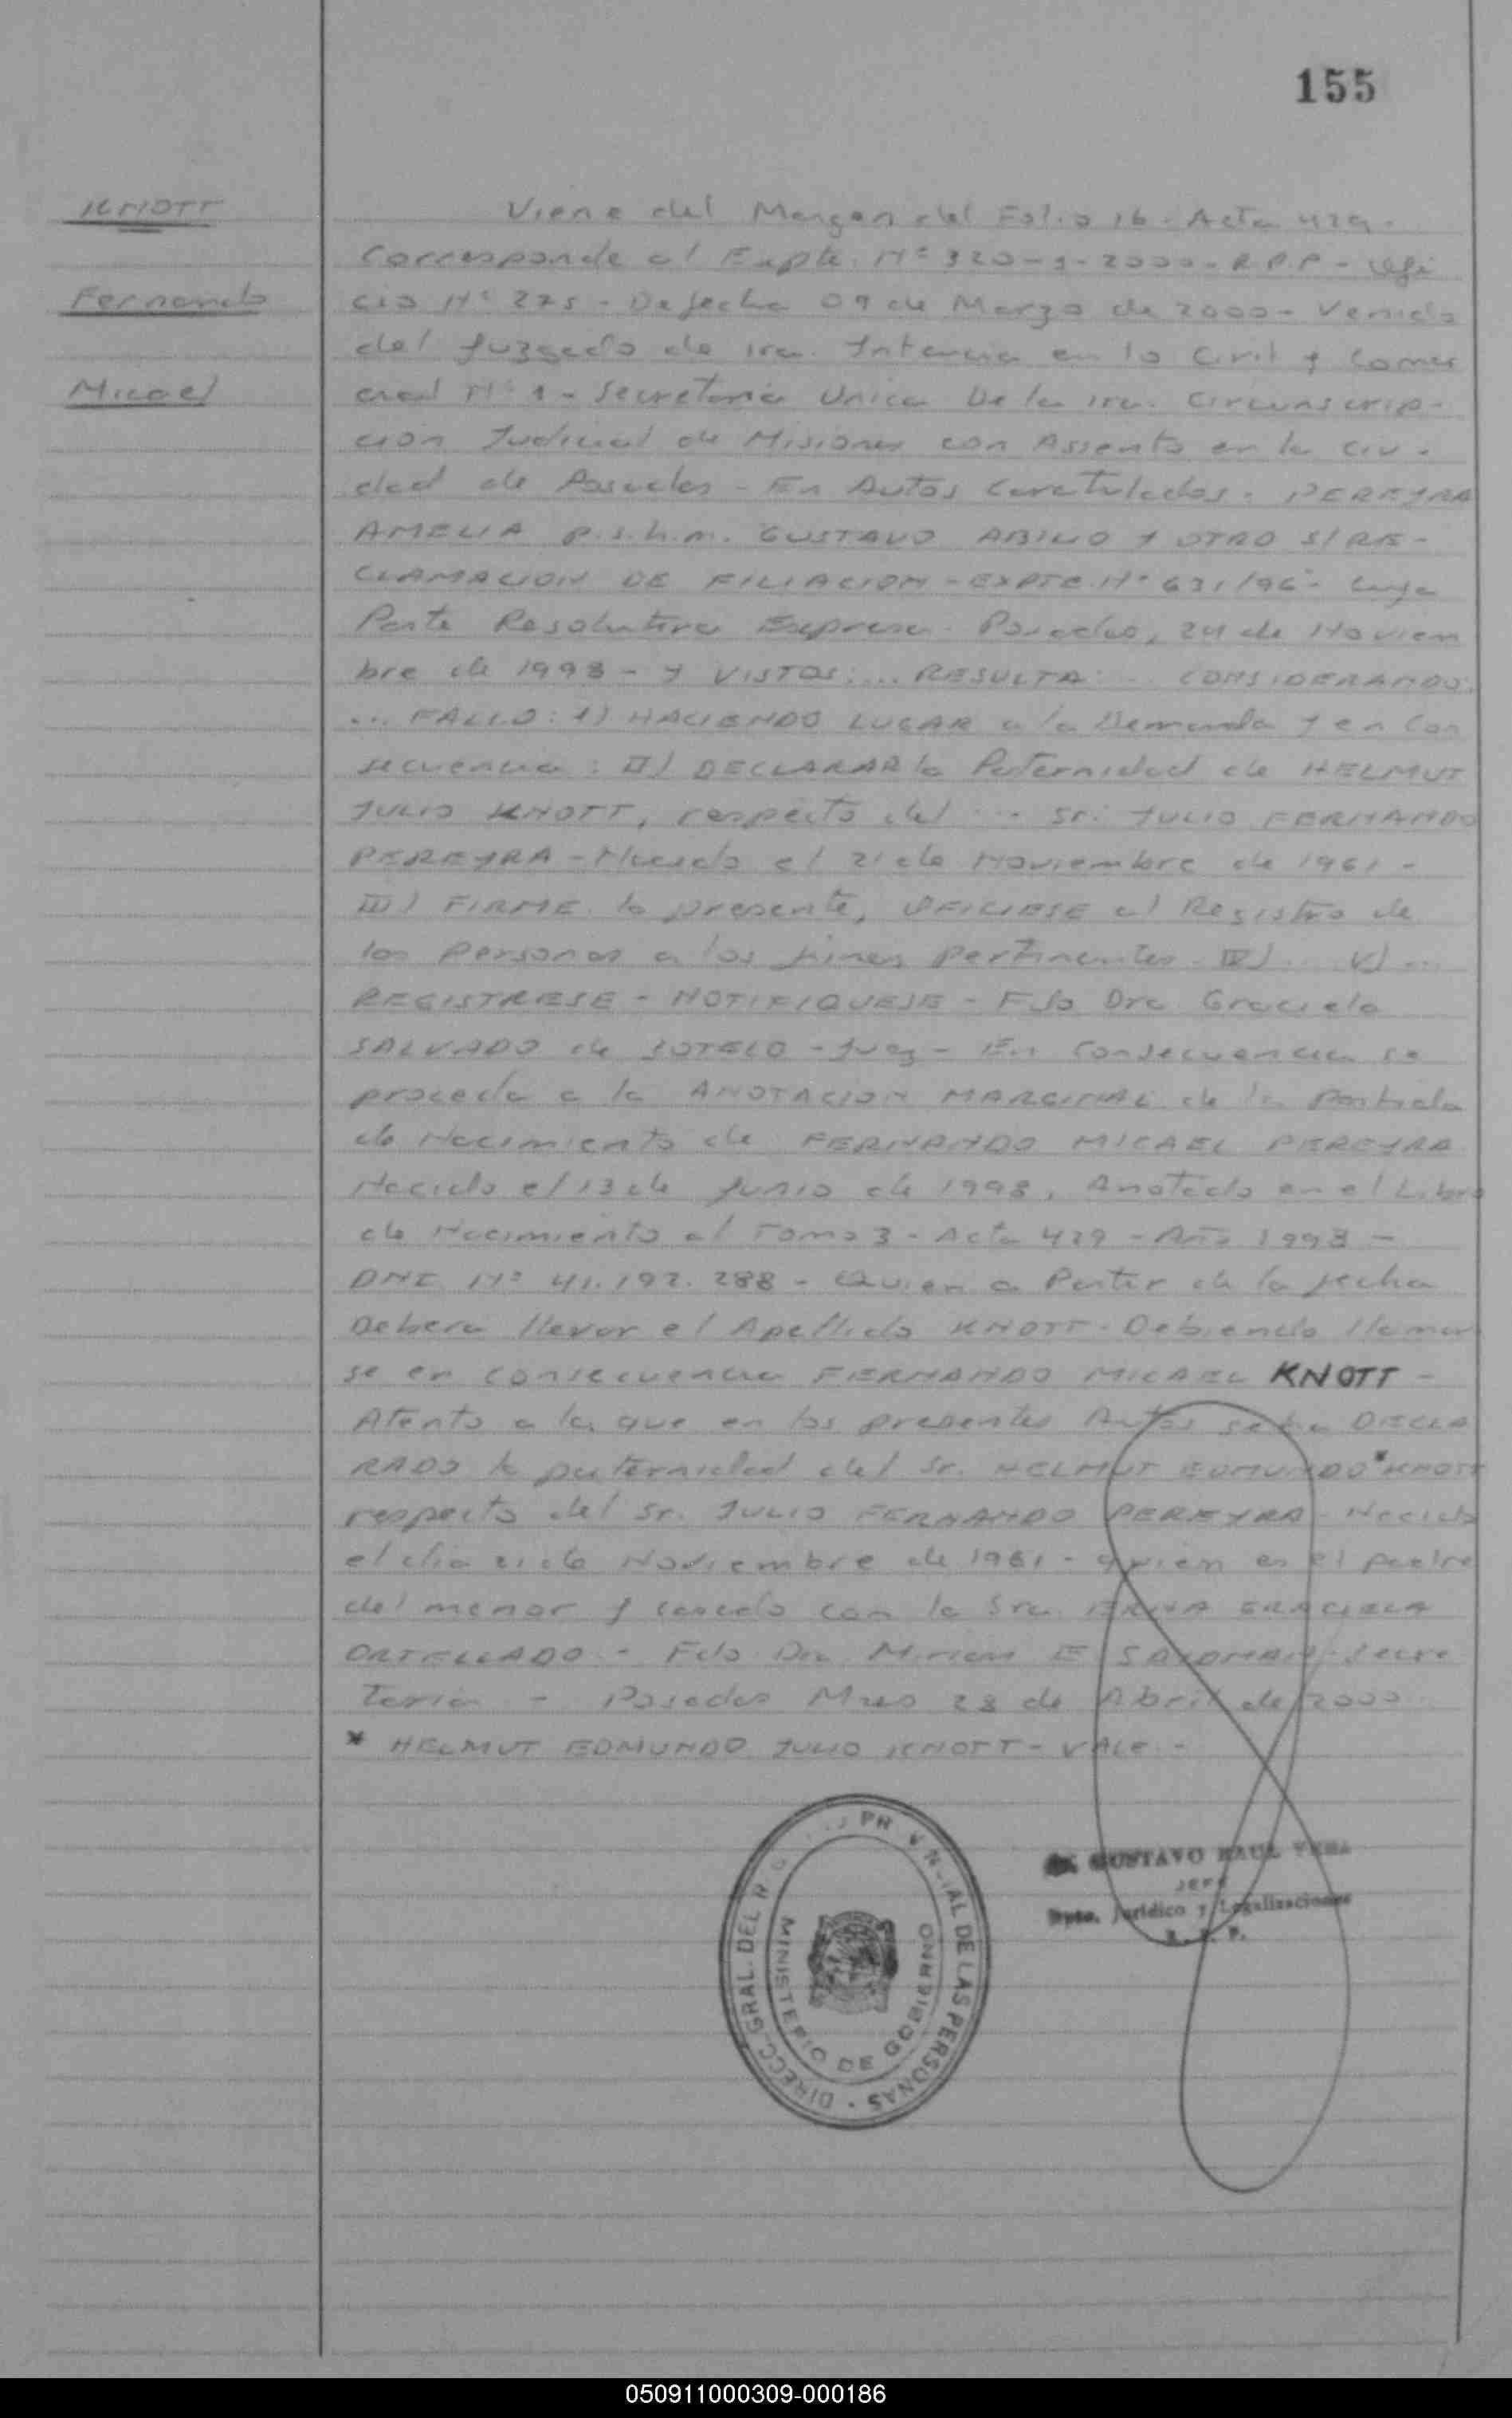 155
KNOTT
Fernando
Micael
Viene del Margen del Folio 16 - Acta 429 -
Corresponde al Expte. Nº 320-9-2000 - R.P.P - Ofi
cio Nº 275 - De fecha 09 de Marzo de 2000 - Venido
del Juzgado de 1ra. Intancia en lo Civil y Comer
cial Nº 1 - Secretaria Unica De la 1ra. Circunscrip-
cion Judicial de Misiones con Assento en la Ciu-
dad de Posadas - En Autos Caratulados. PEREYRA
AMELIA p.s.h.m. GUSTAVO ABILIO Y OTRO S/ RE-
CLAMACION DE FILIACION - EXPTE. Nº 631/96 - Cuya
Parte Resolutiva Expresa. Posadas, 24 de Noviem
bre de 1998 - Y VISTOS: ... RESULTA: ... CONSIDERANDO:
... FALLO: 1) HACIENDO LUGAR a la Demanda y en Con
secuencia: II) DECLARAR la Paternidad de HELMUT
JULIO KNOTT, respecto del ... Sr. JULIO FERNANDO
PEREYRA - Nacido el 21 de Noviembre de 1961 -
III) FIRME la presente, OFICIESE al Registro de
las Personas a los fines pertinentes - IV) ... V) ...
REGISTRESE - NOTIFIQUESE - Fdo Dra. Graciela
SALVADO de SOTELO - Juez - En Consecuencia se
proceda a la ANOTACION MARGINAL de la Partida
de Nacimiento de FERNANDO MICAEL PEREYRA
Nacido el 13 de Junio de 1998, Anotado en el Libro
de Nacimiento al Tomo 3 - Acta 429 - Año 1998 -
DNI. Nº 41.192.288 - Quien a Partir de la fecha
Debera llevar el Apellido KNOTT - Debiendo llamar
se en consecuencia FERNANDO MICAEL KNOTT -
Atento a la que en los presentes Autos se ha DECLA
RADO la paternidad del Sr. HELMUT EDMUNDO * KNOTT
respecto del Sr. JULIO FERNANDO PEREYRA - Nacido
el dia 21 de Noviembre de 1961 - quien es el padre
del menor y casado con la Sra. ERNA GRACIELA
ORTELLADO - Fdo Dra. Miriam E. - Secre
taria - Posadas Mnes 28 de Abril de 2000
* HELMUT EDMUNDO JULIO KNOTT - VALE. -
DIRECC. GRAL. DEL PROVINCIAL DE LAS PERSONAS
MINISTERIO DE GOBIERNO
GUSTAVO RAUL VERA
JEFE
Dpto. Jurídico y Legalizaciones
R. P. P.
050911000309-000186